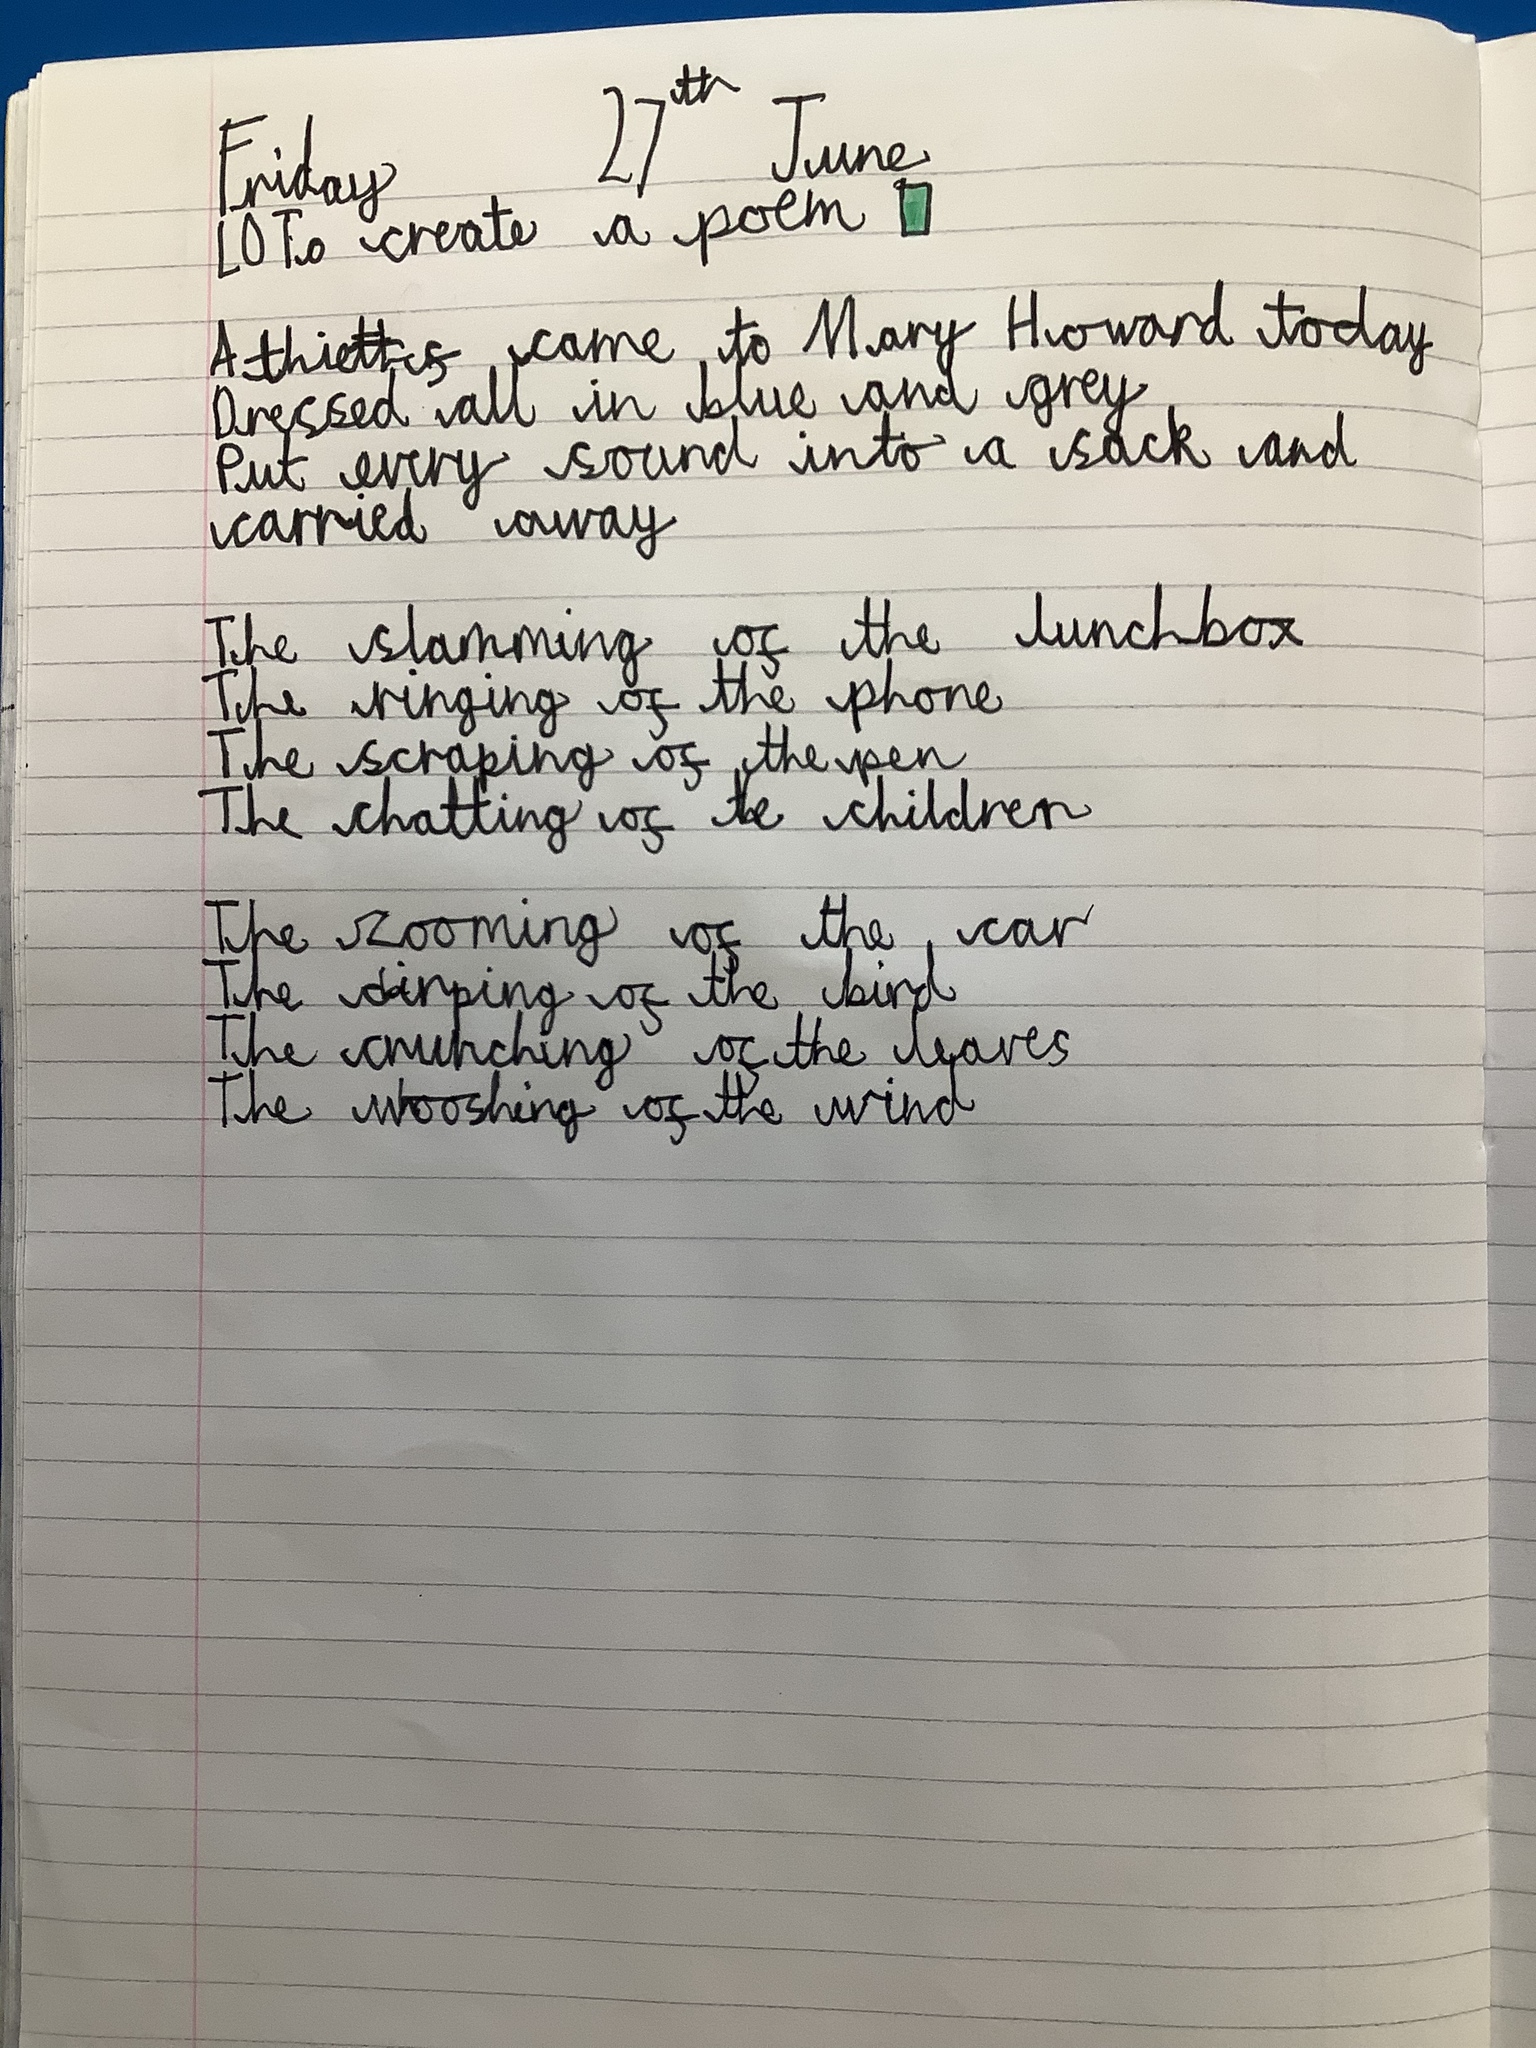 Friday 27th June
LO To create a poem
A came to Mary Howard today
Dressed all in blue and grey
Put every sound into a sack and
carried away
The slamming of the lunchbox
The ringing of the phone
The scraping of the pen
The chatting of te children
The zooming of the car
The of the bird
The crunching of the leaves
The wooshing of the wind